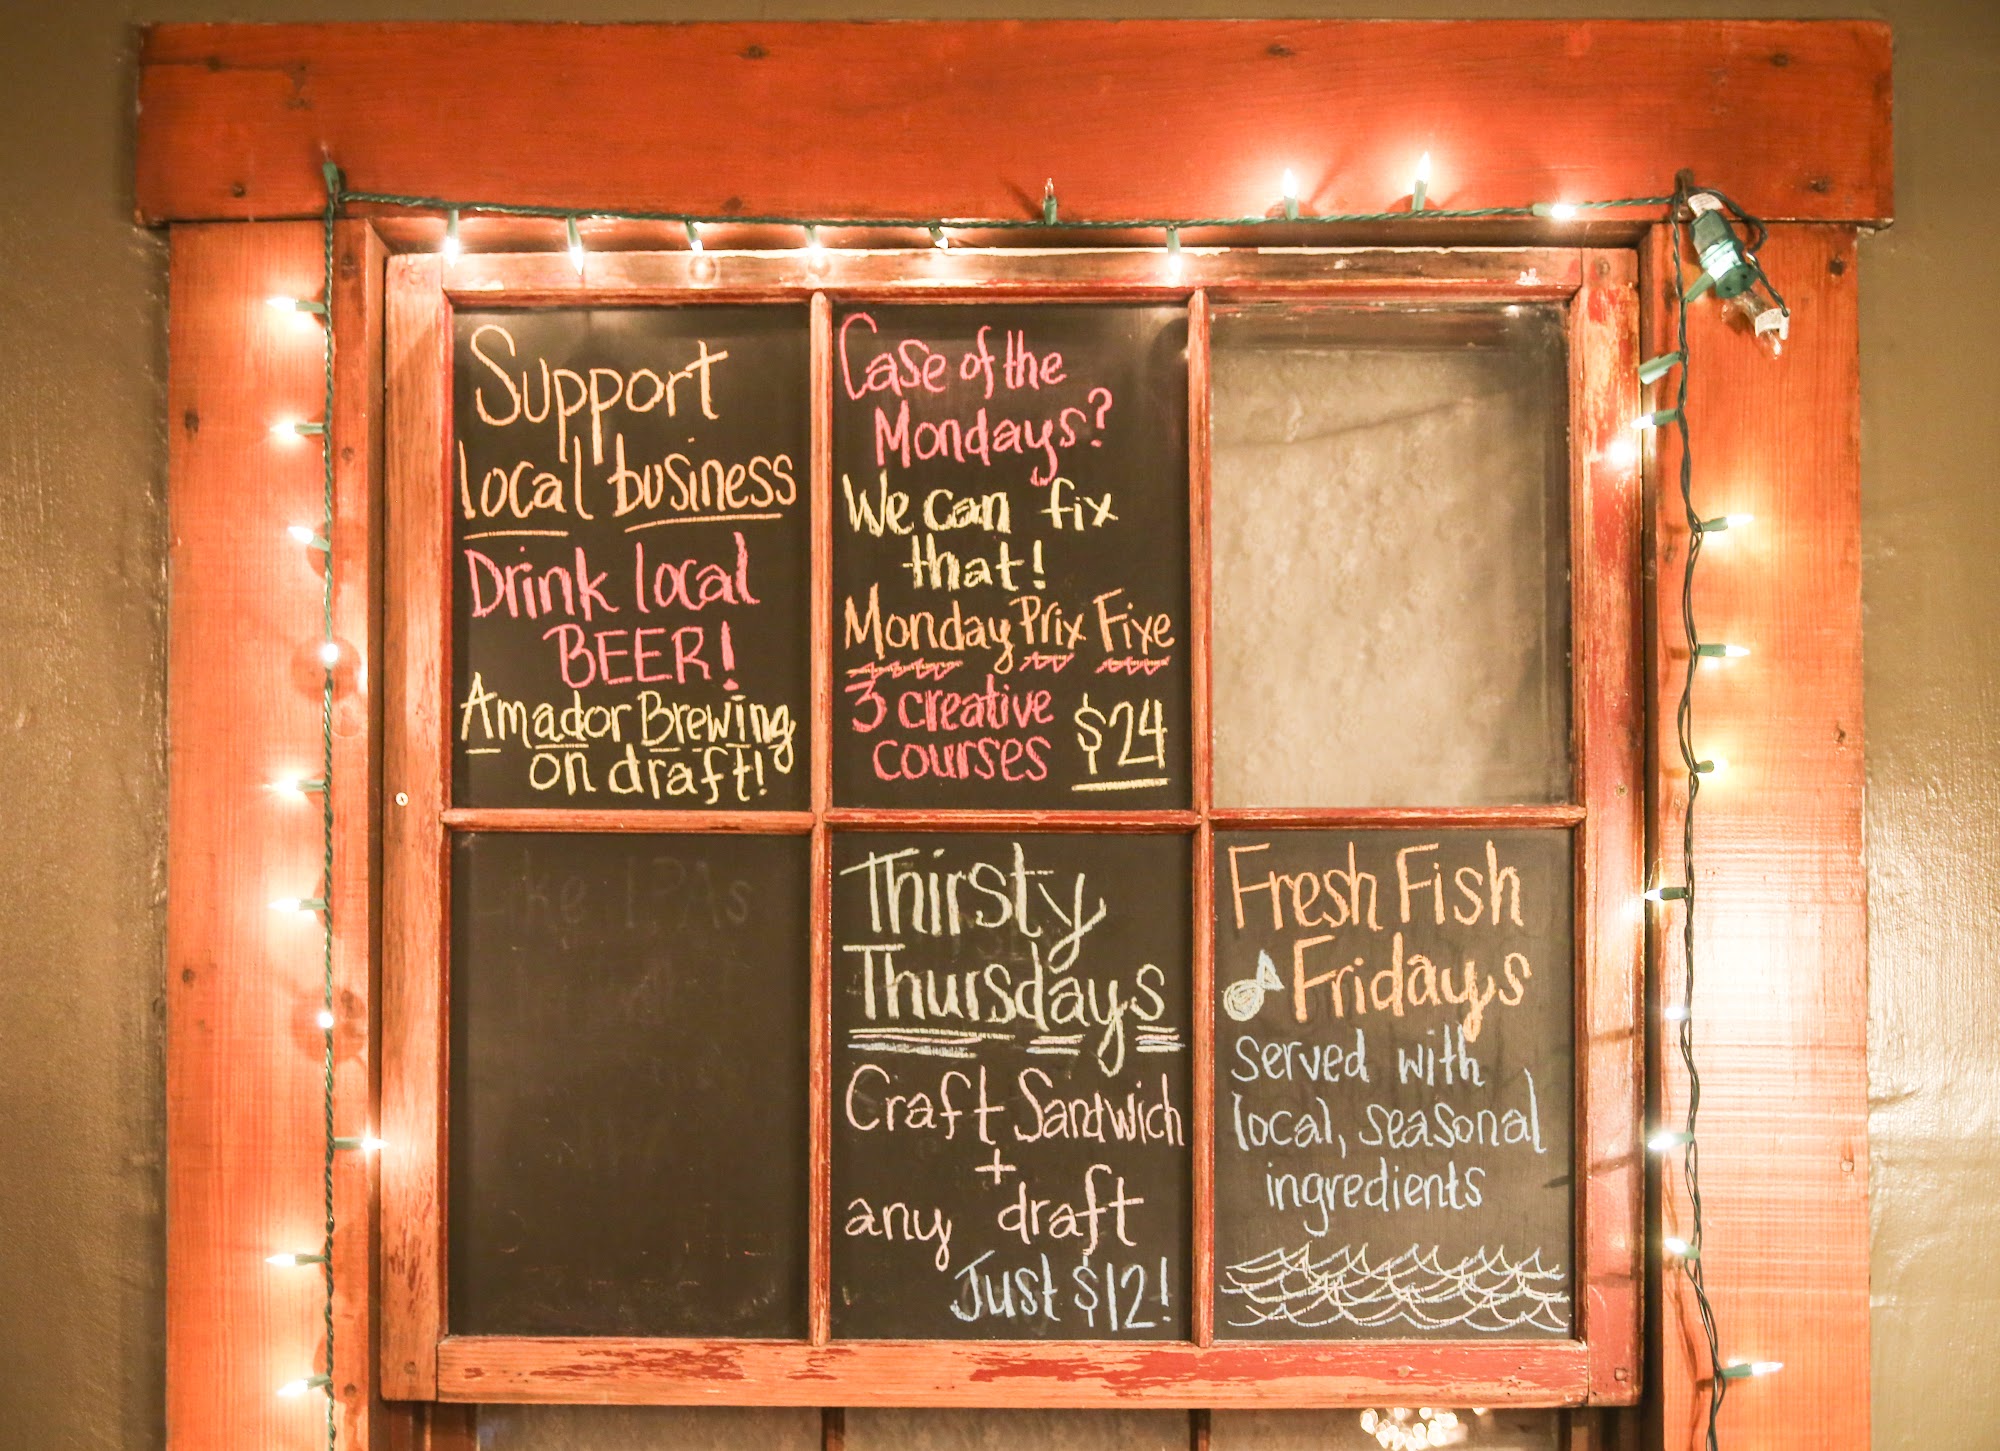 Support
local business
Drink local
BEER!
Amador Brewing
on draft!
Case of the
Mondays?
We can fix
that!
Monday Prix Fixe
3 creative
courses $24
like IPAs
Thirsty
Thursdays
Craft Sandwich
+
any draft
Just $12!
Fresh Fish
Fridays
served with
local, seasonal
ingredients